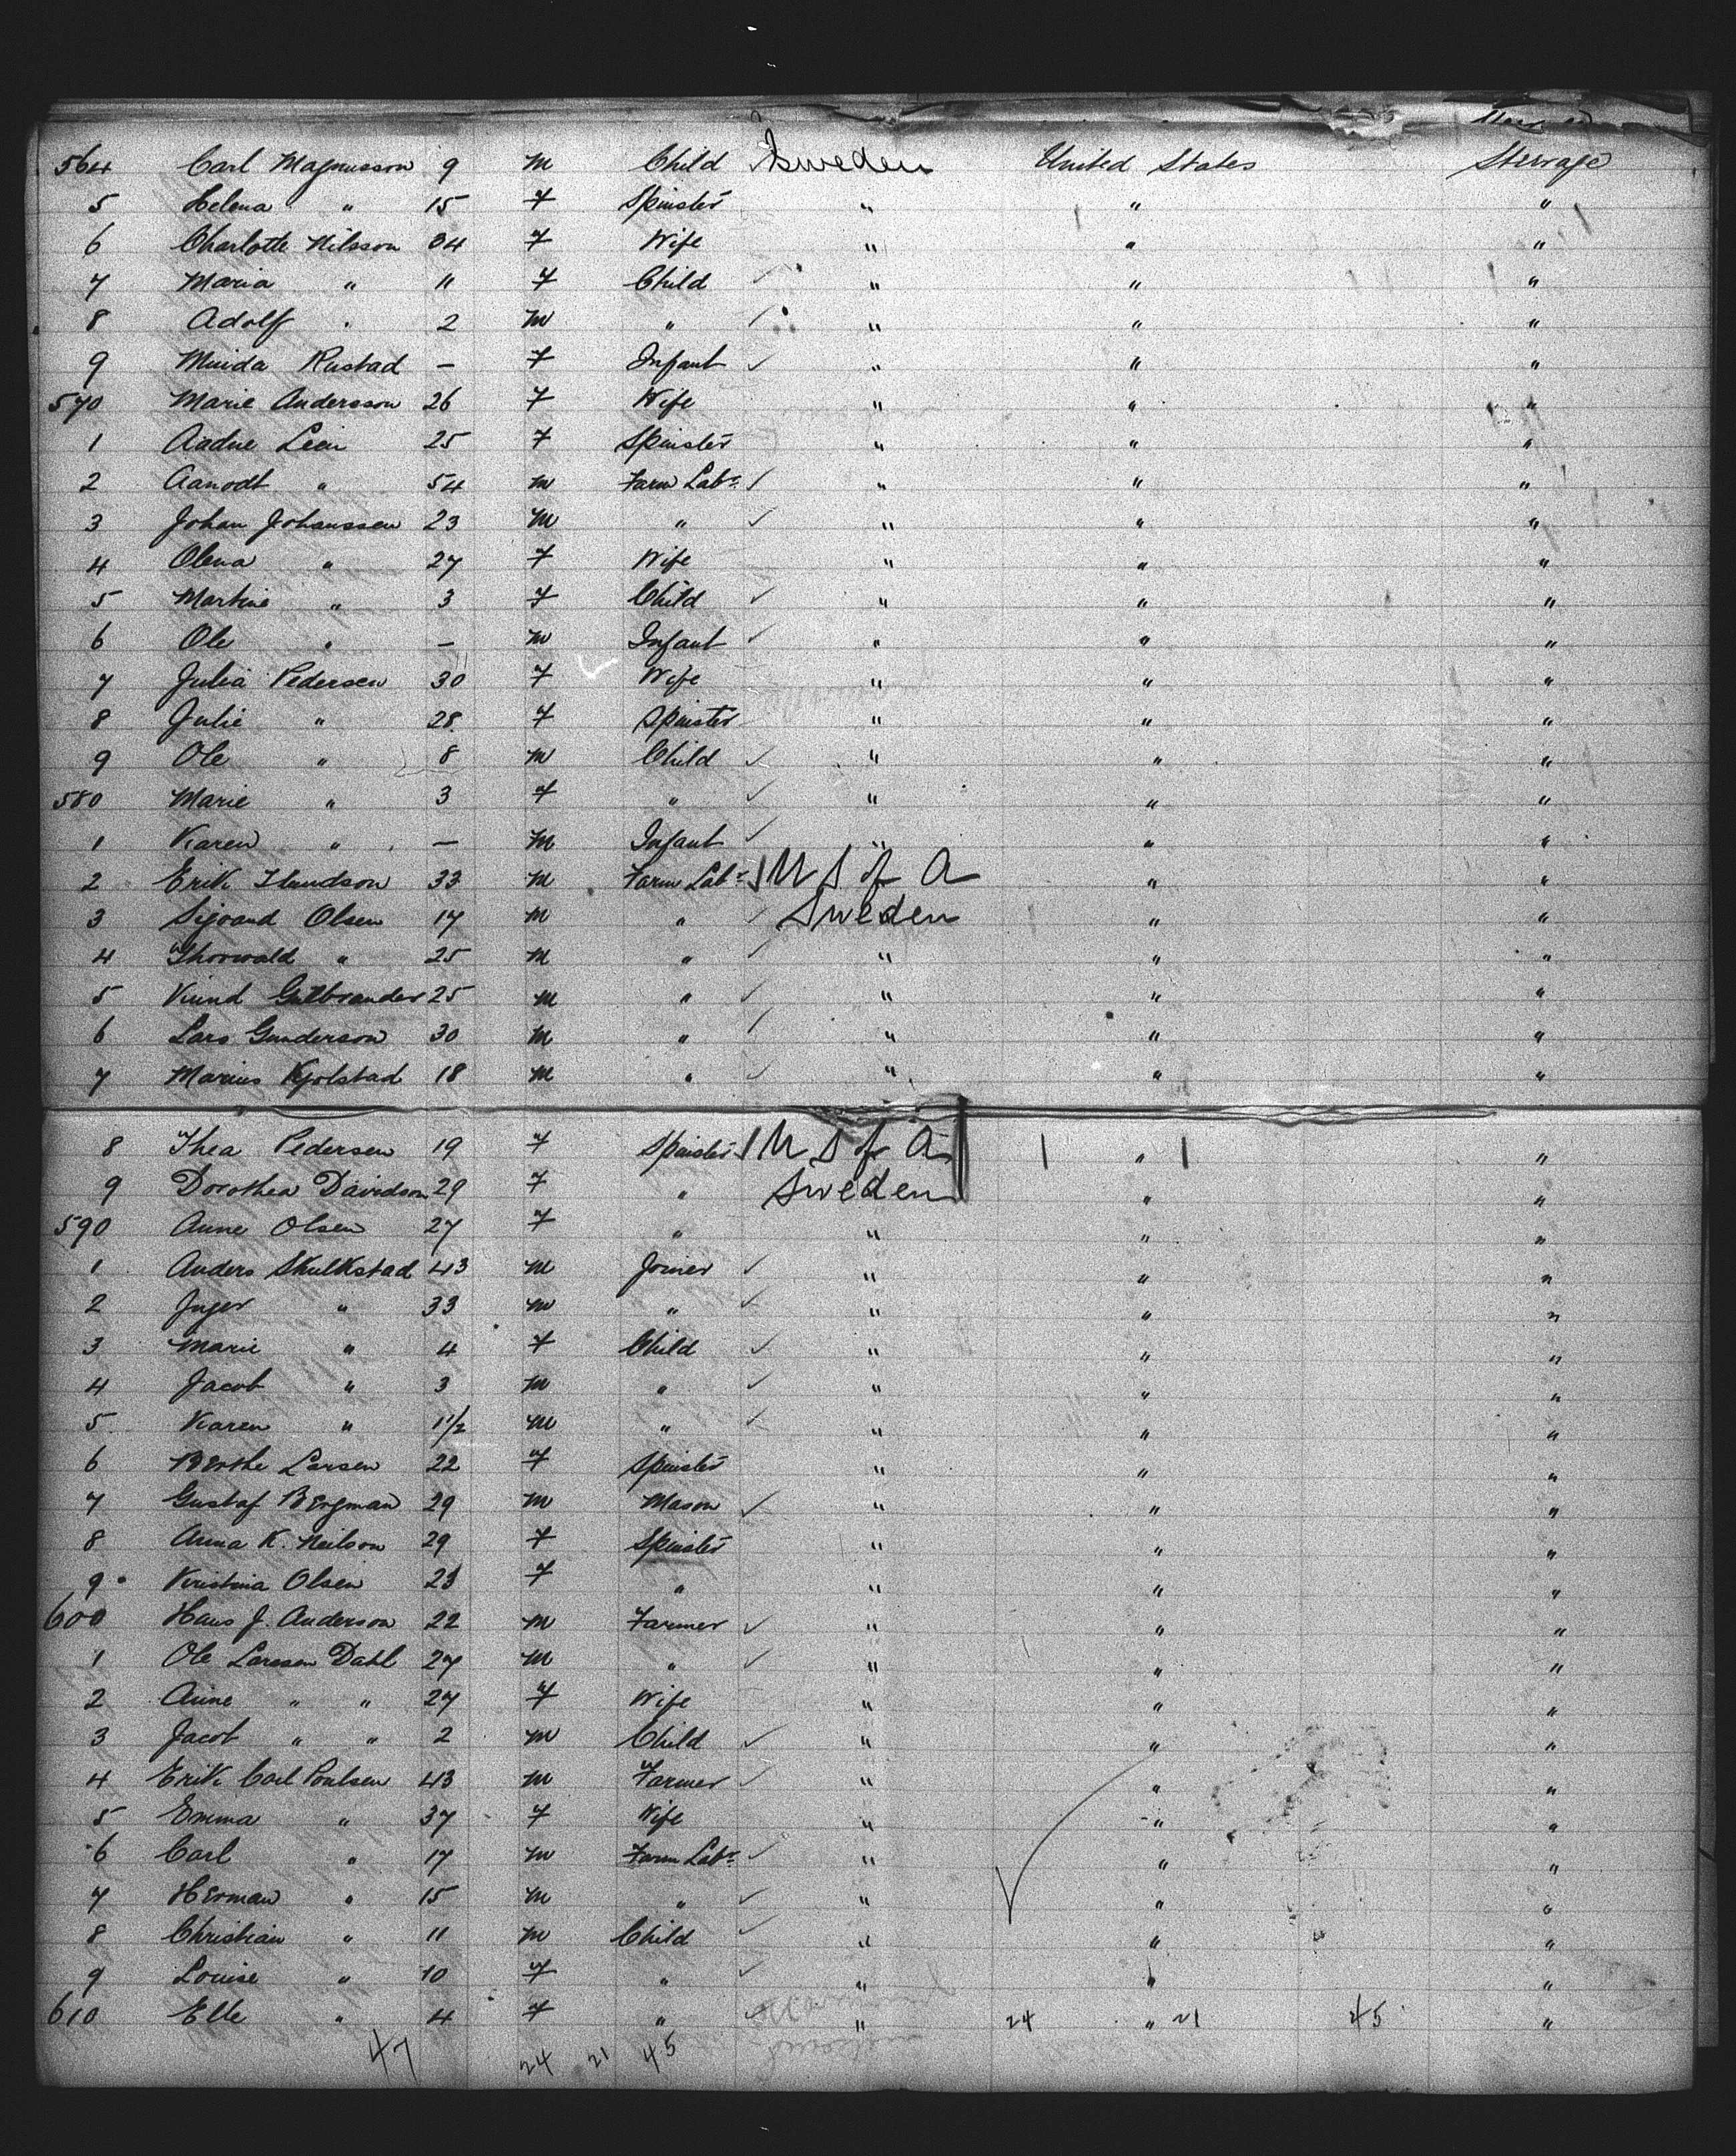 564 Carl Magnusson 9 m Child Sweden United States Steerage
5 Helena " 15 f Spinster " " "
6 Charlotte Nilsson 34 f Wife " " "
7 Maria " 11 f Child " " "
8 Adolf " 2 m " " " "
9 Minda Rustad - f Infant " " "
570 Marie Andersson 26 f Wife " " "
1 Aadne Lein 25 f Spinster " " "
2 Aanodt " 54 m Farm Labr " " "
3 Johan Johanssen 23 m " " " "
4 Olena " 27 f Wife " " "
5 Martine " 3 f Child " " "
6 Ole " - m Infant " " "
7 Julia Pedersen 30 f Wife " " "
8 Julie " 28 f Spinster " " "
9 Ole " 8 m Child " " "
580 Marie " 3 f " " " "
1 Karen " - m Infant " " "
2 Erik 33 m Farm Labr U S of A " "
3 Sigvand Olsen 17 m " Sweden " "
4 Thorwald " 25 m " " " "
5 Knud Gulbrander 25 m " " " "
6 Lars Gunderson 30 m " " " "
7 Marius Kjolstad 18 m " " " "
8 Thea Pedersen 19 f Spinster U S of A " "
9 Dorothea Davidson 29 f " Sweden " "
590 Anne Olsen 27 f " " " "
1 Anders Skulkstad 43 m Joiner " " "
2 Inger " 33 m " " " "
3 Marie " 4 f Child " " "
4 Jacob " 3 m " " " "
5 Karen " 1 1/2 m " " " "
6 Berthe Larsen 22 f Spinster " " "
7 Gustaf Bergman 29 m Mason " " "
8 Anna K. Neilson 29 f Spinster " " "
9 Kristina Olsen 23 f " " " "
600 Hans J. Anderson 22 m Farmer " " "
1 Ole Larssen Dahl 27 m " " " "
2 Anne " " 27 f Wife " " "
3 Jacob " " 2 m Child " " "
4 Erik Carl Poulsen 43 m Farmer " " "
5 Emma " 37 f Wife " " "
6 Carl " 17 m Farm Labr " " "
7 Herman " 15 m " " " "
8 Christian " 11 m Child " " "
9 Louise " 10 f " " " "
610 Elle " 4 f " " 24 " 21 45 "
47 24 21 45